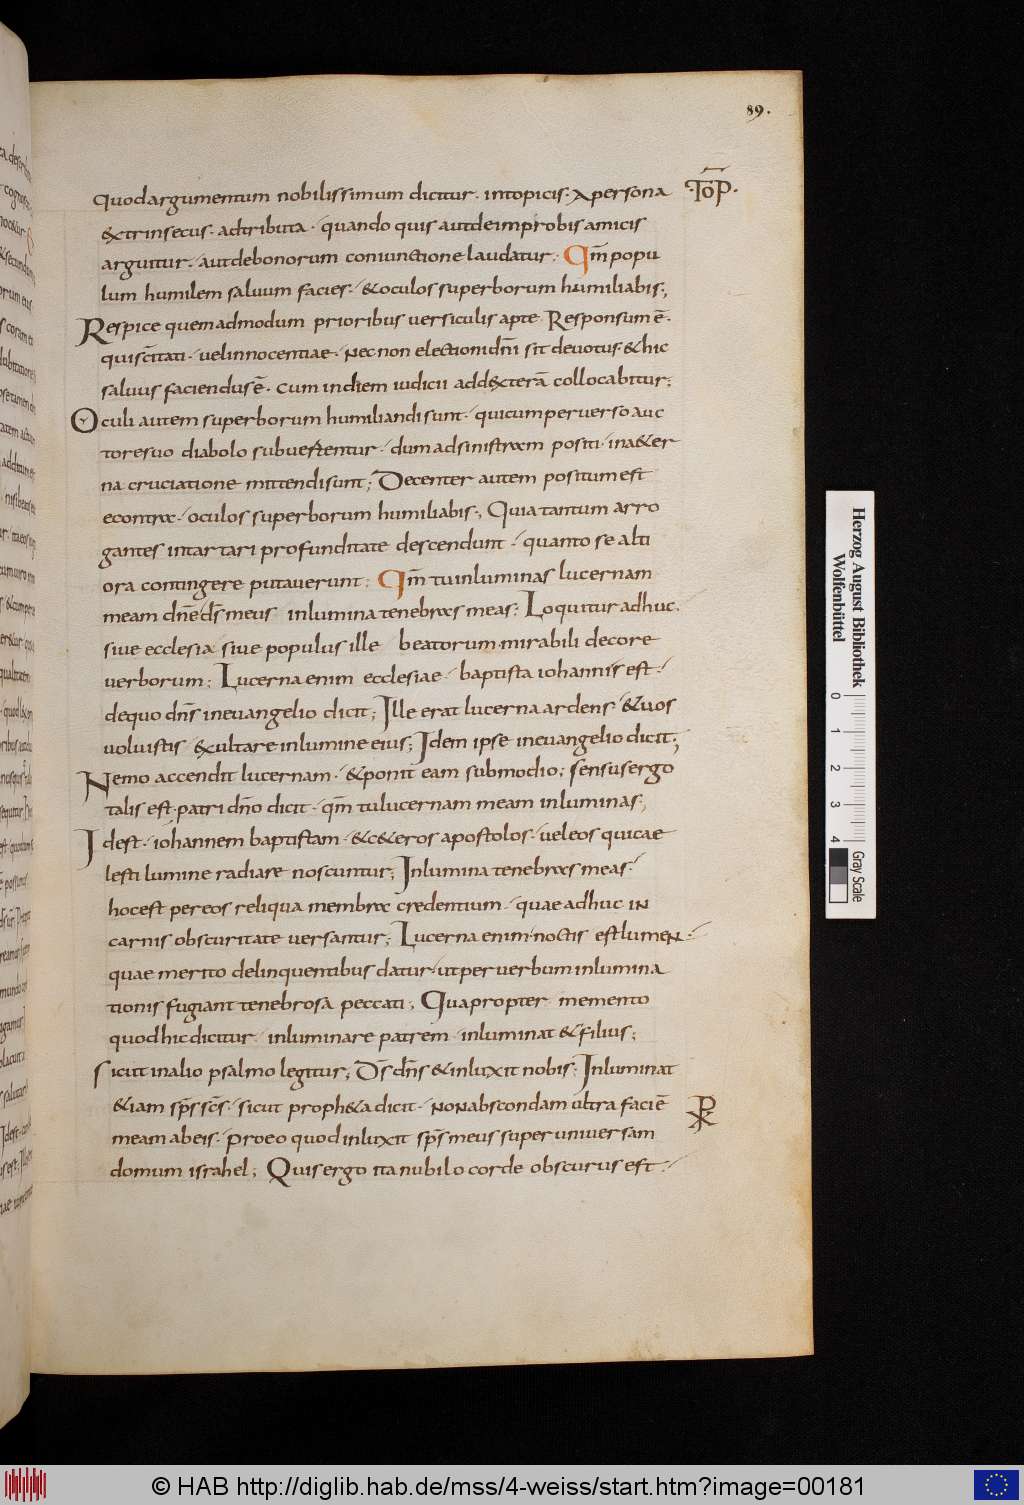 89.
Quod argumentum nobilissimum dicitur · in topicis · A persona ·TOP̄·
& trinsecus · adtributa · quando quis aut de improbis amicis
arguitur · aut de bonorum coniunctione laudatur · Qm̄ popu
lum humilem saluum facies · & oculos superborum humiliabis;
Respice quemadmodum prioribus uersiculis apte Responsum ē ·
qui sc̄itati · uel innocentiae · Nec non electioni dn̄i sit deuotus · & hic
saluus faciendus ē · cum in diem iudicii ad d&xterā collocabitur;
Oculi autem superborum humiliandi sunt · qui cum peruerso auc
tore suo diabolo subuertentur · dum ad sinistram positi · in a&er
na cruciatione mittendi sunt; Decenter autem positum est
econtra · oculos superborum humiliabis; Quia tantum arro
gantes in tartari profunditate descendunt · quanto se alti
ora contingere putauerunt; Qm̄ tu inluminas lucernam
meam dn̄e ds̄ meus inlumina tenebras meas; Loquitur adhuc
siue ecclesia siue populus ille beatorum · mirabili decore
uerborum; Lucerna enim ecclesiae · baptista iohannis est ·
de quo dn̄s in euangelio dicit; Ille erat lucerna ardens · & uos
uoluistis &xultare in lumine eius; Idem ipse in euangelio dicit;
Nemo accendit lucernam · & ponit eam sub modio; sensus ergo
talis est · patri dn̄o dicit · qm̄ tu lucernam meam inluminas;
Id est · iohannem baptistam · & c&eros apostolos · uel eos qui cae
lesti lumine radiare noscuntur; Inlumina tenebras meas ·
hoc est per eos reliqua membra credentium · quae adhuc in
carnis obscuritate uersantur; Lucerna enim noctis est lumen ·
quae merito delinquentibus datur · ut per uerbum inlumina
tionis fugiant tenebrosa peccati; Quapropter memento
quod hic dicitur · inluminare patrem · inluminat & filius;
Sicut in alio psalmo legitur; Ds̄ dn̄s & inluxit nobis; Inluminat
& iam sp̄s sc̄s · sicut proph&a dicit · Non abscondam ultra faciē
meam ab eis · Pro eo quod inluxit sp̄s meus super uniuersam
domum israhel; Quis ergo ita nubilo corde obscurus est ·
Herzog August Bibliothek
Wolfenbüttel
0 1 2 3 4
Gray Scale
© HAB http://diglib.hab.de/mss/4-weiss/start.htm?image=00181